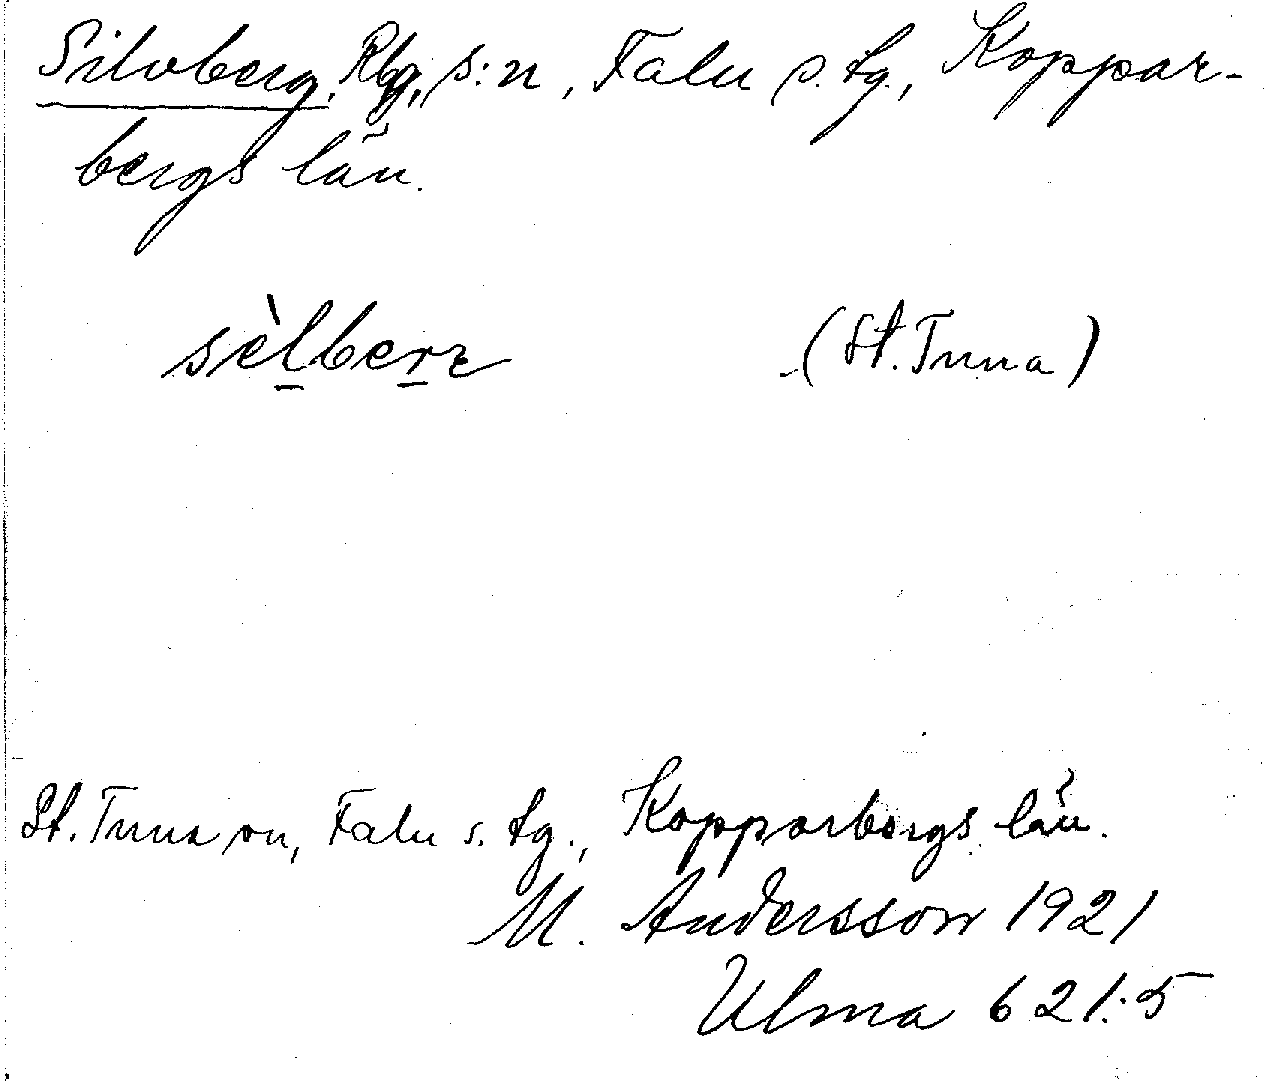 Silvberg, Kbg, s:n, Falu s. tg., Koppar-
bergs län.
sèl̲ber̲z (St. Tuna)
St. Tuna sn, Falu s. tg., Kopparbergs län.
M. Andersson 1921
Ulma 621:5